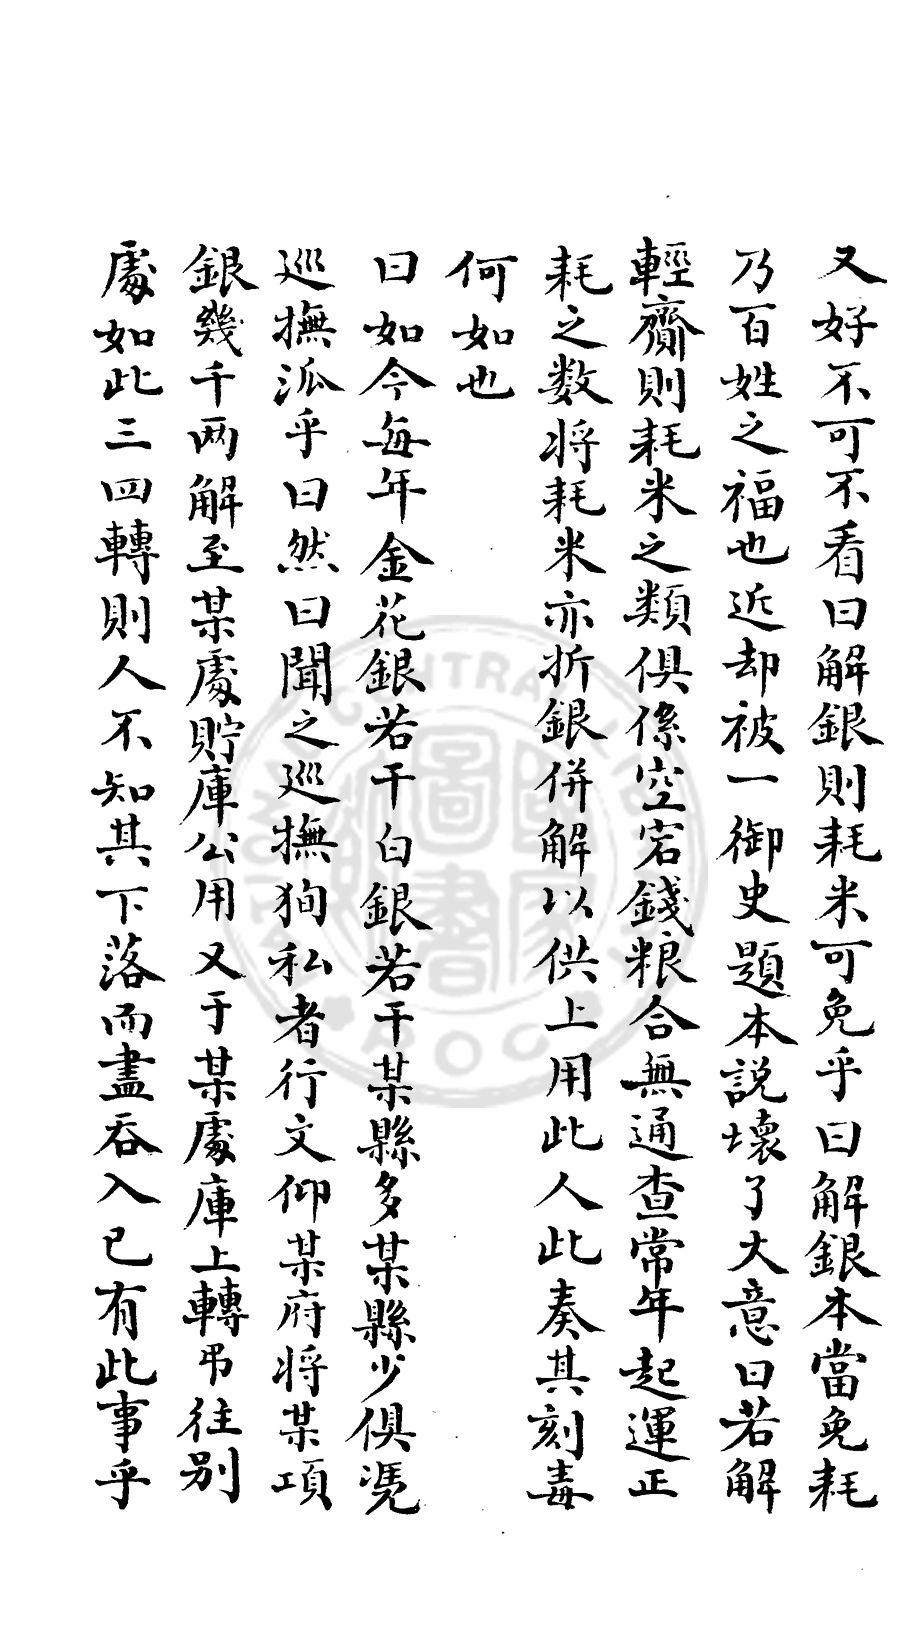 又好不可不看曰解銀則耗米可免乎曰解銀本當免耗
乃百姓之福也近却被一御史題本説壞了大意曰若解
輕齎則耗米之類俱係空宕錢粮合無通查常年起運正
耗之数將耗米亦折銀併解以供上用此人此奏其刻毒
何如也
曰如今每年金花銀若干白銀若干某縣多某縣少俱凴
巡撫派乎曰然曰聞之巡撫狥私者行文仰某府將某項
銀幾千两解至某處貯庫公用又于某處庫上轉弔往别
處如此三四轉則人不知其下落而盡吞入已有此事乎
NATIONAL CENTRAL LIBRARY
ROC
國家圖書館